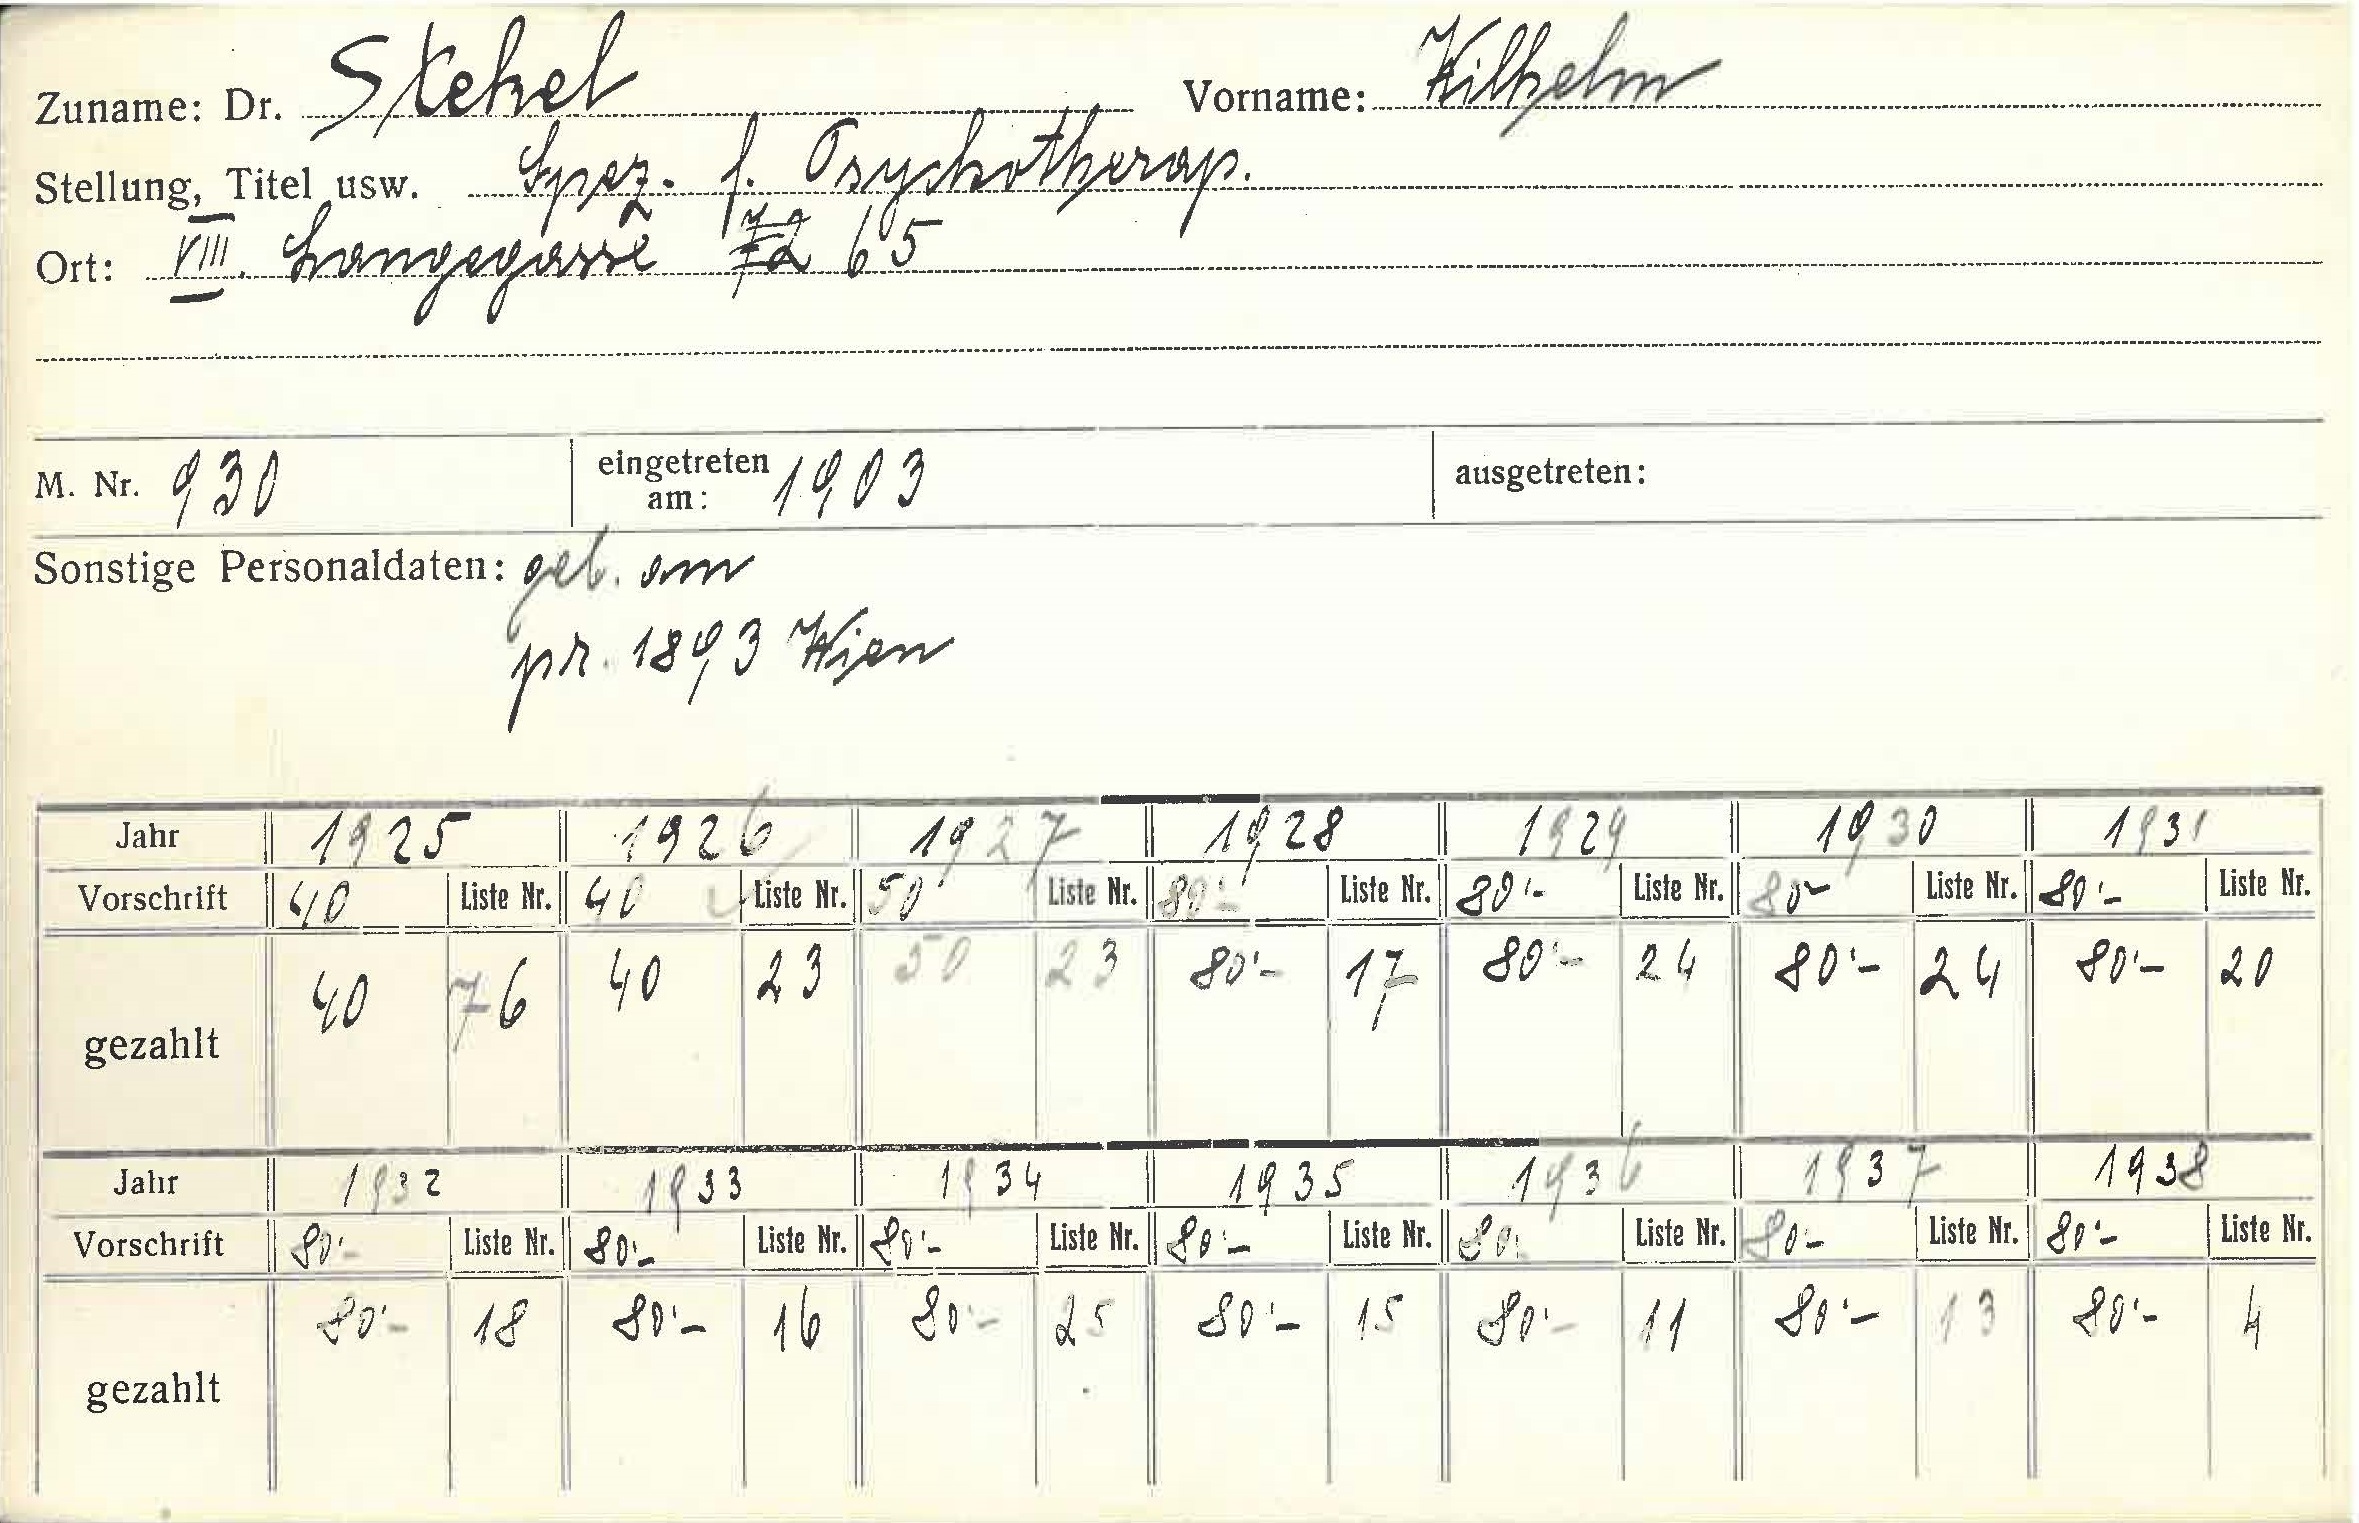 Zuname: Dr. Stekel Vorname: Wilhelm
Stellung, Titel usw. Spez. f. Psychotherap.
Ort: VIII. Langegasse 72 65
M. Nr. 930 eingetreten am: 1903 ausgetreten:
Sonstige Personaldaten: geb. am
pr. 1893 Wien
Jahr 1925 1926 1927 1928 1929 1930 1931
Vorschrift 40 Liste Nr. 40 Liste Nr. 50 Liste Nr. 80'- Liste Nr. 80'- Liste Nr. 80- Liste Nr. 80'- Liste Nr.
gezahlt 40 76 40 23 50 23 80'- 17 80'- 24 80'- 24 80'- 20
Jahr 1932 1933 1934 1935 1936 1937 1938
Vorschrift 80'- Liste Nr. 80'- Liste Nr. 80'- Liste Nr. 80'- Liste Nr. 80'- Liste Nr. 80- Liste Nr. 80'- Liste Nr.
gezahlt 80'- 18 80'- 16 80'- 25 80'- 15 80'- 11 80'- 13 80'- 4